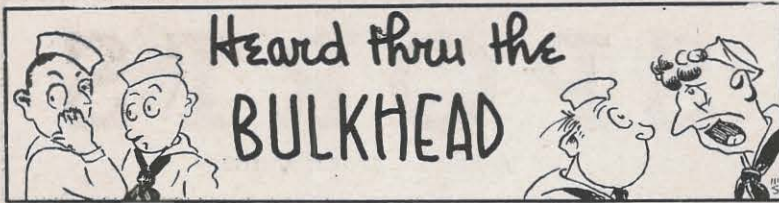 Heard thru the
BULKHEAD